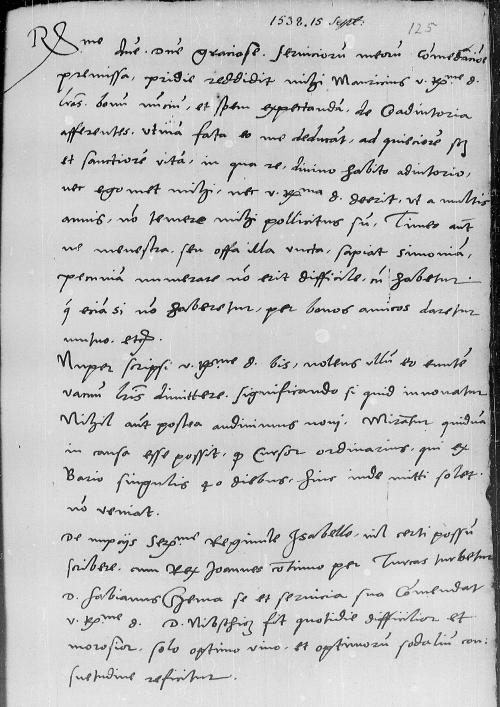 1538. 15 Sept:
125
R me dne. Dne graciose. Serviciorum meorum Comendacione
premissa, pridie reddidit mihi Mauricius v. Rme d.
lras. bonum nuncium, et spem expectandam, de Coadiutoria
afferentes. Utinam fata eo me deducant, ad quieciorem
et sanctiorem vitam, in qua re, divino habito adiutorio,
nec egomet mihi, nec v. Rma d. deerit, ut a multis
annis, non temere mihi pollicitus sum, Timeo autem
ne menestra. seu offa illa uncta, sapiat simoniam,
pecuniam numerare non erit difficile, cum habetur.
que eciam si non haberetur, per bonos amicos daretur
mutuo. etc.
Nuper scripsi v. Rme d. bis, nolens ullum eo euntem
vacuum lris dimittere. significando si quid innovatur
Nihil autem postea audivimus novi. Miratur quidam
in causa esse possit, quod Cursor ordinarius, qui ex
Bario singulis 40 diebus, huc inde mitti solet.
non veniat.
De nupciis Serme Regine Isabelle, nil certi possum
scribere. cum Rex Joannes continuo per Turcas turbetur
D. Fabianus Czema se et servicia sua Comendat
v. Rme d. D. Nibschicz fit quotidie difficilior et
morosior, solo optimo vino. et optimorum sodalium con-
suetudine reficitur.